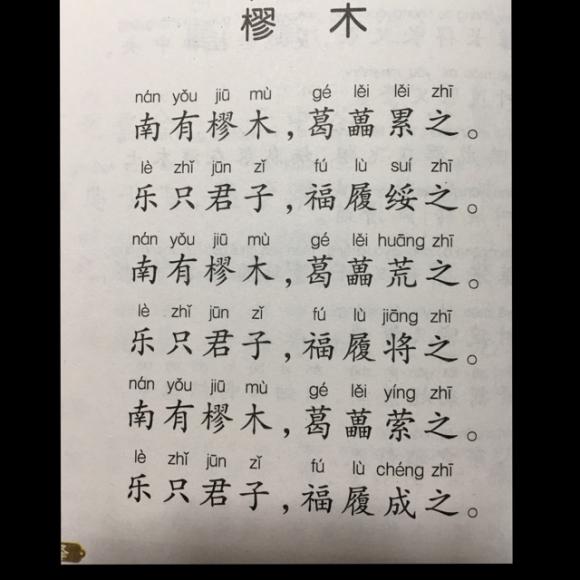 樛 木
nán yǒu jiū mù gé lěi lěi zhī
南有樛木，葛藟累之。
lè zhǐ jūn zǐ fú lù suí zhī
乐只君子，福履绥之。
nán yǒu jiū mù gé lěi huāng zhī
南有樛木，葛藟荒之。
lè zhǐ jūn zǐ fú lù jiāng zhī
乐只君子，福履将之。
nán yǒu jiū mù gé lěi yíng zhī
南有樛木，葛藟萦之。
lè zhǐ jūn zǐ fú lù chéng zhī
乐只君子，福履成之。